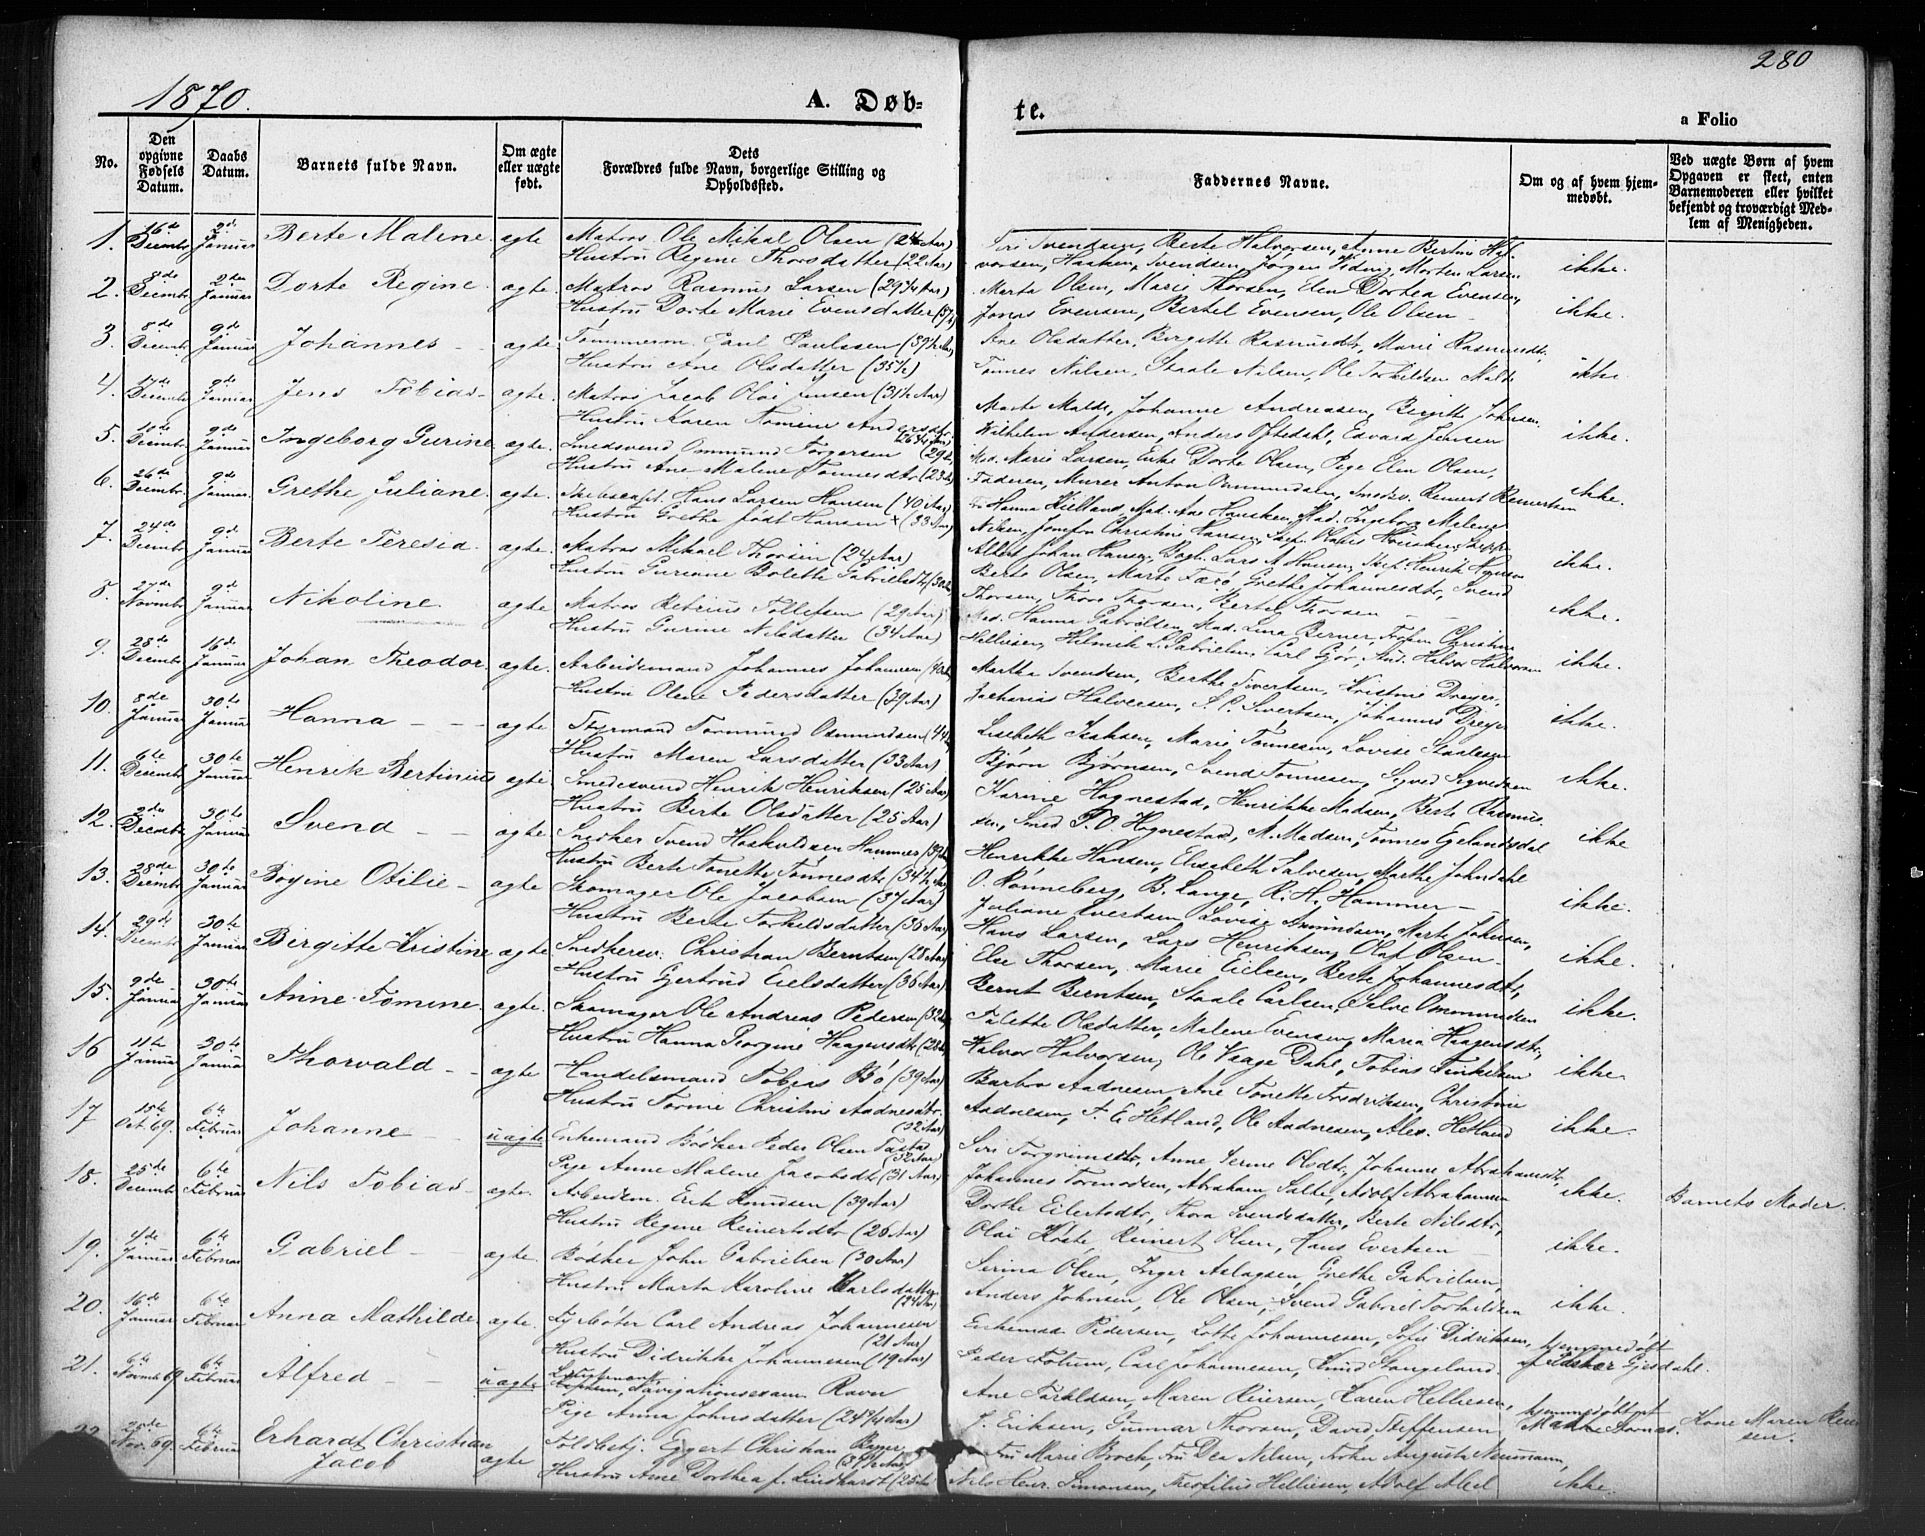 1870.
A. Døb-
te.
280
a Folio
No.
Den opgivne Fødsels Datum.
Daabs Datum.
Barnets fulde Navn.
Om ægte eller uægte født.
Dets Forældres fulde Navn, borgerlige Stilling og Opholdssted.
Faddernes Navne.
Om og af hvem hjemmedøbt.
Ved uægte Børn af hvem Opgaven er skeet, enten Barnemoderen eller hvilket bekjendt og troværdigt Medlem af Menigheden.
1. 16de Decembr 2den Januar Berte Malene ægte Matros Ole Mikal Olsen (24 Aar)
Hustru Regine Thorsdatter (22 Aar)
Siri Svendsen, Berte Halvorsen, Anne Bertine Hal-
vorsen, Haaken Svendsen, Jørgen Morten Larsen ikke.
2. 8de Decembr 2den Januar Dorte Regine ægte. Matros Rasmus Larsen (29 3/4 Aar)
Hustru Dorte Marie Evensdatter
Marta Olsen, Marie Thorsen, Elen Dortea Evensen,
Jonas Evensen, Bertel Evensen, Ole Olsen ikke.
3. 8de Decembr 9de Januar Johannes ægte. Tømmerm. Paul Paulsen (39 1/2 Aar)
Hustru Ane Olsdatter (35 1/2)
Ane Olsdatter, Birgitte Rasmusdtr, Marie Rasmusdtr.
Tønnes Nilsen, Staale Nilsen, Ole Torkildsen Malde ikke
4. 17de Decembr 9de Januar Jens Tobias ægte. Matros Jacob Olai Jensen (31 1/2 Aar)
Hustru Karen Tomine Andersdtr
Marte Malde, Johanne Andreasen, Birgitte Johnsen,
Wilhelm Andersen, Anders Oftedahl, Edvard Jensen ikke.
5. 10de Decembr 9de Januar Ingeborg Gurine ægte. Smedsvend Ommund Torgersen (29
Hustru Ane Malene Tønnesdtr (23
Mad. Marie Larsen, Enke Dorte Olsen, Pige Elen Olsen,
Faderen, Murer Anton Ommundsen, Smedsv. Reinert Reinertsen ikke.
6. 26de Decembr 9de Januar Grethe Juliane. ægte. Skibscapt. Hans Larsen Hansen (40 Aar)
Hustru Grethe født Hansen (33 Aar)
Fr Hanna Kielland, Mad. Ane Hausken, Mad. Ingeborg Meling
Nilsen, Josefa Christine Hansen, Olaus Hausken,
Aldert Johan Hansen, Bogh. Lars A Hansen, Henrik ikke.
7. 24de Decembr 9de Januar Berte Teresia. ægte. Matros Mikael Thorsen (24 Aar)
Hustru Guriane Bolette Gabrielsdtr (30
Berte Olsen, Marte Færø, Grethe Johannesdtr, Svend
Thorsen, Thore Thorsen, Bertel Thorsen ikke.
8. 27de Novembr 9de Januar Nikoline. ægte Matros Petrius Tollefsen (29 Aar)
Hustru Gurine Nilsdatter (34 Aar)
Mad. Hanna Gabrielsen, Mad. Lina Berner, Frøken Christine
Helliesen, Helmik S. Gabrielsen, Carl Gjør, Halvor Halvorsen ikke.
9. 28de Decembr 16de Januar Johan Theodor ægte. Arbeidsmand Johannes Johannesen (40
Hustru Olene Pedersdatter (39 Aar)
Martha Svendsen, Berthe Sivertsen, Kristine Dreyer,
Zacharias Halvorsen, S. C. Sivertsen, Johannes Dreyer ikke.
10. 8de Januar 30te Januar Hanna ægte Styrmand Tormund Osmundsen (44
Hustru Maren Larsdatter (33 Aar)
Lisebeth Isaksen, Marie Tønnesen, Lovise Staalesen
Bjørn Bjørnsen, Svend Tønnesen, Sigved Sigvedsen ikke.
11. 6te Decembr 30te Januar Henrik Bertinius ægte Smedesvend Henrik Henriksen (25 Aar)
Hustru Berte Olsdatter (25 Aar)
Karine Hognestad, Henrikke Madsen, Berte Rasmus-
sen, Smed T. O. Hognestad, A. Madsen, Tønnes Egelandsdal ikke
12. 2den Decembr 30te Januar Svend ægte. Snedker Svend Haskuldsen Hammer (39
Hustru Berte Tonette Tønnesdtr (34 1/2 Aar)
Henrikke Hansen, Elisabeth Salvesen, Marthe Johndahl
O. Rønneberg, B. Lange, R. H. Hammer ikke.
13. 28de Decembr 30te Januar Bogine Otilie ægte Skomager Ole Jacobsen (37 Aar)
Hustru Berte Torkildsdatter (36 Aar)
Juliane Evertsen, Lovise Amundsen, Marte Johnsen,
Hans Larsen, Lars Henriksen, Olaf Olsen ikke.
14. 29de Decembr 30te Januar Birgitte Kristine ægte Snedkersv. Christian Berntsen (28 Aar)
Hustru Gjertrud Eielsdatter (36 Aar)
Else Thorsen, Marie Eielsen, Berte Johannesdtr,
Bernt Berntsen, Staale Carlsen, Salve Ommundsen ikke.
15. 9de Januar 30te Januar Anne Tomine ægte. Skomager Ole Andreas Pedersen (32
Hustru Hanna Georgine Haagensdtr (28
Talette Olsdatter, Malene Evensen, Maria Haagensdtr,
Halvor Halvorsen, Ole Vaage Dahl, Tobias Tinkelsen ikke.
16 11te Januar 30te Januar Thorvald ægte Handelsmand Tobias Bø (39 Aar)
Hustru Tomine Christine Aadnesdtr.
(32 Aar)
Barbro Aadnesen, Ane Tonette Fredriksen, Christine
Aadnesen, T. E. Hetland, Ole Aadnesen, Alex. Hetland ikke.
17 15de Oct 69. 6te Februar Johanne uægte Enkemand Bødker Peder Olsen Tasta
(32 Aar)
Pige Anne Malene Jacobsdtr (31 Aar)
Siri Torgrimsdtr, Anne Serine Olsdtr, Johanne Abrahamsdtr,
Johannes Tormodsen, Abraham Salte, Adolf Abrahamsen ikke. Barnets Moder.
18. 25de Decembr 6te Februar Nils Tobias ægte. Arbeidsm. Erik Knudsen (39 Aar)
Hustru Regine Reinertsdtr (26 Aar)
Dorthe Eilertsdtr, Thora Svendsdatter, Berte Nilsdtr,
Olai Høste, Reinert Olsen, Hans Evertsen ikke.
19. 4de Januar 6te Februar Gabriel ægte Bødker John Gabrielsen (30 Aar)
Hustru Marta Karoline Karlsdatter
(24 Aar)
Serina Olsen, Inger Aslagsen, Grethe Gabrielsen,
Anders Johnsen, Ole Olsen, Svend Gabriel Torkildsen ikke.
20. 16de Januar 6te Februar Anna Mathilde ægte. Fyrbøter Carl Andreas Johannesen
(21 Aar)
Hustru Didrikke Johannesen (19 Aar)
Enkemad. Pedersen, Lotte Johannesen, Sofie Didriksen,
Peder Fotum, Carl Johannesen, Knud Stangeland. hjemmedøbt af Feldskar Gjesdahl.
21. 6te Novembr 69 6te Februar Alfred uægte Navigationsexam. Ravn
Pige Anna Johnsdatter (24 3/4 Aar)
Ane Taraldsen, Maren Reiersen, Karen Helliesen,
J. Eriksen, Gunnar Thorsen, David Steffensen hjemmedøbt af Kone Maren Reier-
sen.
28de Nov. 69. 6te Februar Erhardt Christian
Jacob ægte Toldbetj. Eggert Christian
Hustru Anne Dorthea f. Lindhardt (25
Fru Marie Broch, Fru Dea Nilsen, Frøken Augusta Neumann,
Nils Henr. Simonsen, Theofilus Helliesen, Adolf Abel ikke.